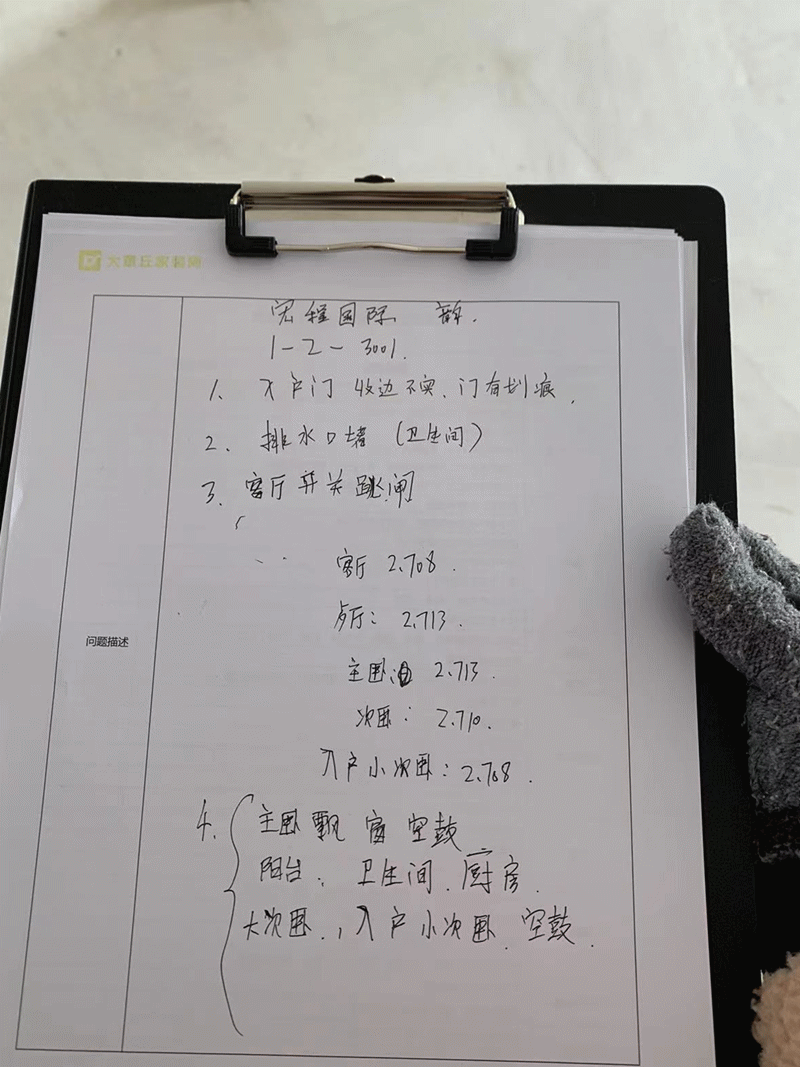 宏程国际
1-2-3001.
1. 入户门 收边不实、门有划痕.
2. 排水口堵 (卫生间)
3. 客厅开关跳闸
客厅 2.708.
2.713.
问题描述
主卧: 2.713.
次卧: 2.710.
入户小次卧: 2.708.
4. 主卧飘窗空鼓
阳台、卫生间、厨房、
大次卧、入户小次卧、空鼓.